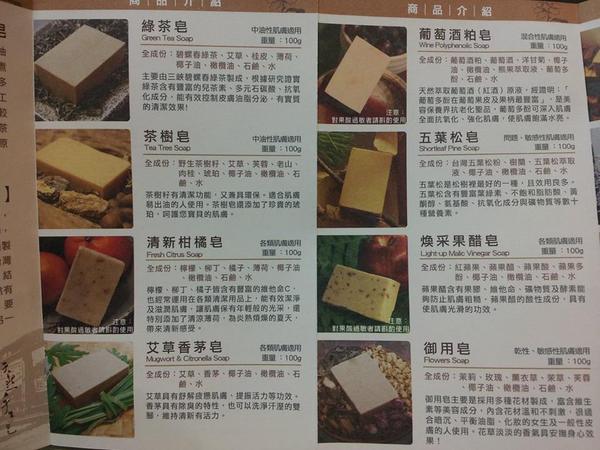 商｜品｜介｜紹
綠茶皂
Green Tea Soap
中油性肌膚適用
重量：100g
全成份：碧螺春綠茶、艾草、桂皮、薄荷、
椰子油、橄欖油、石鹼、水
主要由三峽碧螺春綠茶製成，根據研究證實
綠茶含有豐富的兒茶素、多元石碳酸、抗氧
化成分，能有效控制皮膚油脂分泌，有實質
的清潔效果！
茶樹皂
Tea Tree Soap
中油性肌膚適用
重量：100g
全成份：野生茶樹籽、艾草、芙蓉、老山、
肉桂、琥珀、椰子油、橄欖油、
石鹼、水
茶樹籽有清潔功能，又兼具環保，適合肌膚
易出油的人使用。茶樹皂還添加了珍貴的琥
珀，呵護您寶貝的肌膚。
清新柑橘皂
Fresh Citrus Soap
各類肌膚適用
重量：100g
全成份：檸檬、柳丁、橘子、薄荷、椰子油、
橄欖油、石鹼、水
檸檬、柳丁、橘子皆含有豐富的維他命C，
也經常運用在各類清潔用品上，能有效潔淨
及滋潤肌膚，讓肌膚保有年輕般的光采，還
特別添加了清涼薄荷，為炎熱煩燥的夏天，
帶來清新感受。
注意：
對果酸過敏者請斟酌使用
艾草香茅皂
Mugwort & Citronella Soap
各類肌膚適用
重量：100g
全成份：艾草、香茅、椰子油、橄欖油、石
鹼、水
艾草具有舒解疲憊肌膚，提振活力等功效。
香茅具有除臭的特性，也可以洗淨汗座的雙
腳，維持清新有活力。
商｜品｜介｜紹
葡萄酒粕皂
Wine Polyphenolic Soap
混合性肌膚適用
重量：100g
全成份：葡萄酒粕、葡萄酒、洋甘菊、椰子
油、橄欖油、熊果萃取液、葡萄多
酚、石鹼、水
天然萃取葡萄酒（紅酒）原液，經證明：「
葡萄多酚在葡萄果皮及果柄最豐富」，是美
容保養界抗老化聖品。葡萄多酚可深入肌膚
全面抗氧化、強化肌膚，使肌膚飽滿水亮。
注意：
對果酸過敏者請斟酌使用
五葉松皂
Shortleaf Pine Soap
問題、敏感性肌膚適用
重量：100g
全成份：台灣五葉松粉、樹蘭、五葉松萃取
液、椰子油、橄欖油、石鹼、水
五葉松是松樹裡最好的一種，且效用良多。
五葉松含有豐富葉綠素、不飽和脂肪酸、黃
酮醇、氨基酸、抗氧化成分與礦物質等數十
種營養素。
煥采果醋皂
Light-up Malic Vinegar Soap
各類肌膚適用
重量：100g
全成份：紅蘋果、蘋果醋、蘋果酸、蘋果多
酚、椰子油、橄欖油、石鹼、水
蘋果醋含有果膠、維他命、礦物質及酵素能
夠防止肌膚粗糙，蘋果醋的酸性成分，具有
使肌膚光滑的功效。
注意：
對果酸過敏者請斟酌使用
御用皂
Flowers Soap
乾性、敏感性肌膚適用
重量：100g
全成份：茉莉、玫瑰、薰衣草、茱草、芙蓉
、椰子油、橄欖油、石鹼、水
御用皂主要是採用多種花材製成，富含維生
素等美容成分，內含花材溫和不刺激，很適
合暗沉、平衡油脂、化妝的女生及一般性皮
膚的人使用。花草淡淡的香氣具安撫身心效
果！